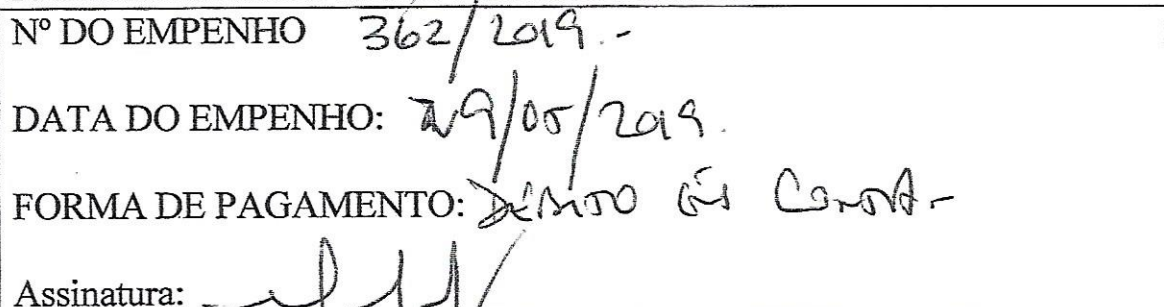 Nº DO EMPENHO 362/2019.-
DATA DO EMPENHO: 29/05/2019.
FORMA DE PAGAMENTO: DÉBITO EM CONTA-
Assinatura: